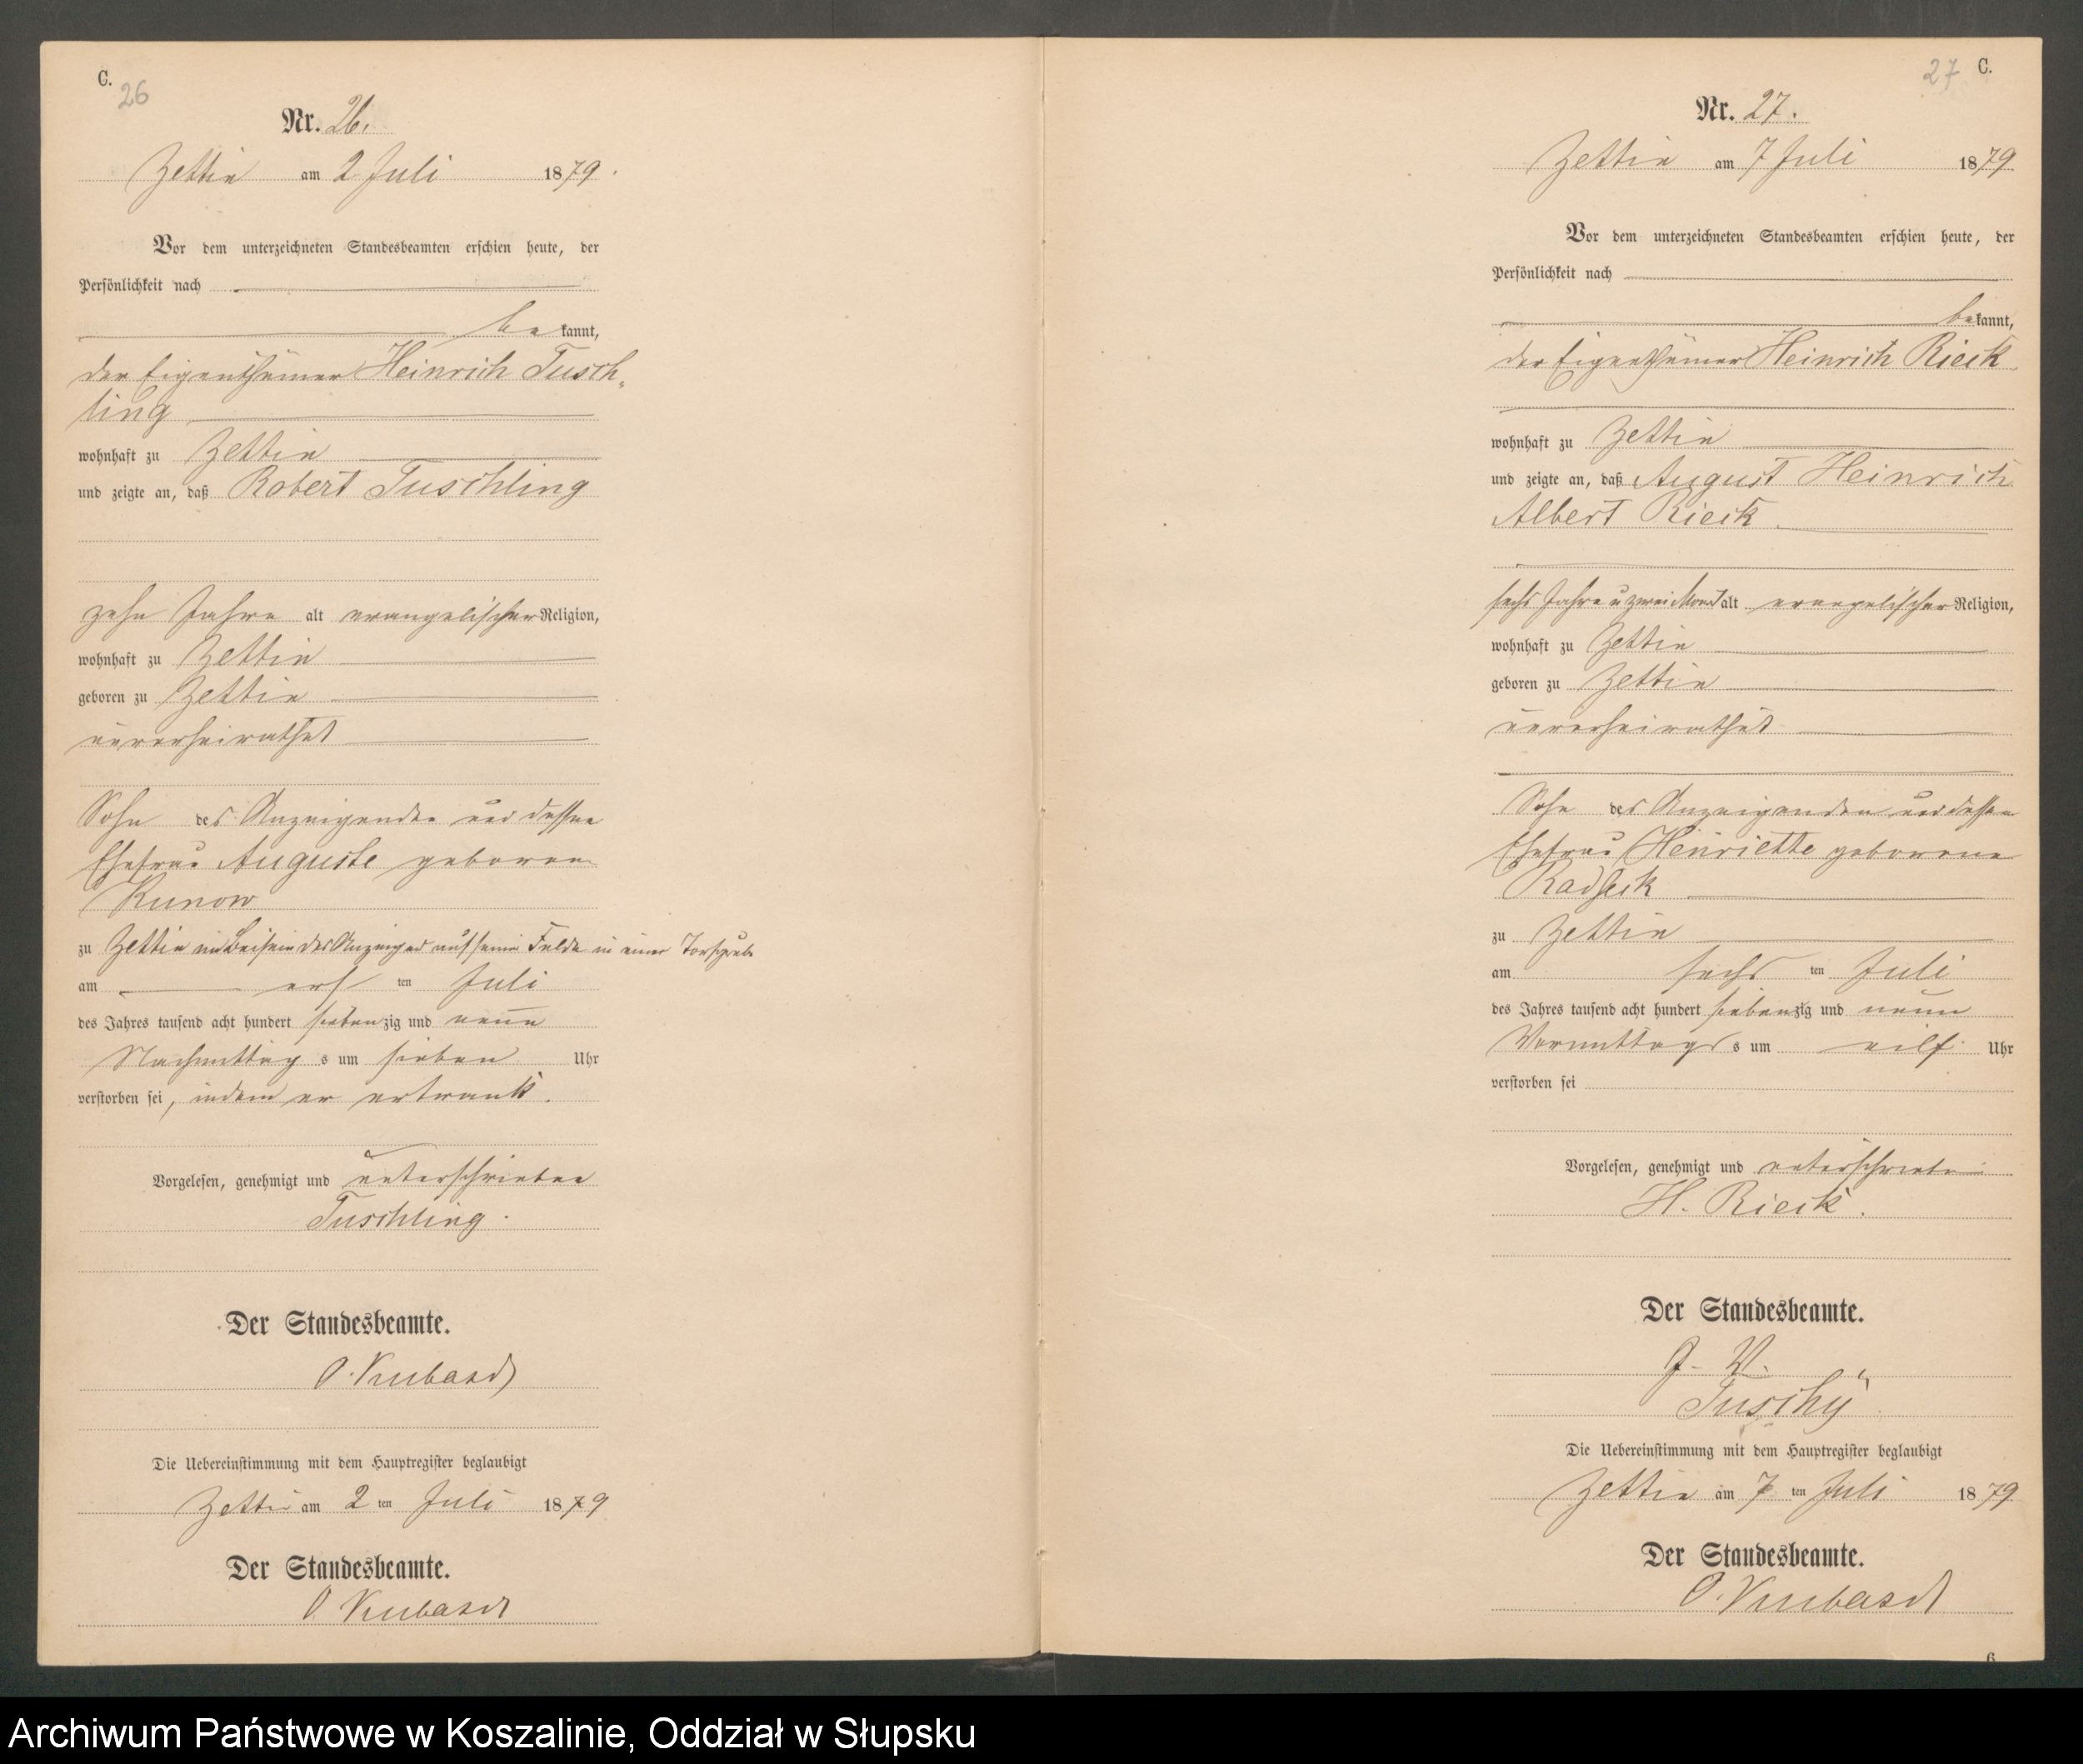 C.
26
Nr. 26.
Zettin am 2 Juli 1879.
Vor dem unterzeichneten Standesbeamten erschien heute, der
Persönlichkeit nach
bekannt,
der Eigenthümer Heinrich Tusch„
ling
wohnhaft zu Zettin
und zeigte an, daß Robert Tuschling
zehn Jahre alt evangelischer Religion,
wohnhaft zu Zettin
geboren zu Zettin
unverheirathet
Sohn des Anzeigenden und dessen
Ehefrau Auguste geborene
Kunow
zu Zettin im Beisein des Anzeigers auf seinem Felde in einer Torfgrube
am ersten Juli
des Jahres tausend acht hundert siebenzig und neun
Nachmittags um sieben Uhr
verstorben sei, indem er ertrank.
Vorgelesen, genehmigt und unterschrieben
Tuschling.
Der Standesbeamte.
O. Kubasch
Die Uebereinstimmung mit dem Hauptregister beglaubigt
Zettin am 2 ten Juli 1879
Der Standesbeamte.
O. Kubasch
27 C.
Nr. 27.
Zettin am 7 Juli 1879
Vor dem unterzeichneten Standesbeamten erschien heute, der
Persönlichkeit nach
bekannt,
der Eigenthümer Heinrich Rieck
wohnhaft zu Zettin
und zeigte an, daß August Heinrich
Albert Rieck
sechs Jahre u zwei Monat alt evangelischer Religion,
wohnhaft zu Zettin
geboren zu Zettin
unverheirathet
Sohn des Anzeigenden und dessen
Ehefrau Henriette geborene
zu Zettin
am sechs ten Juli
des Jahres tausend acht hundert siebenzig und neun
Vormittags s um eilf Uhr
verstorben sei
Vorgelesen, genehmigt und unterschrieben
H. Rieck.
Der Standesbeamte.
J. V.
Tuschy
Die Uebereinstimmung mit dem Hauptregister beglaubigt
Zettin am 7 ten Juli 1879
Der Standesbeamte.
O. Kubasch
6
Archiwum Państwowe w Koszalinie, Oddział w Słupsku